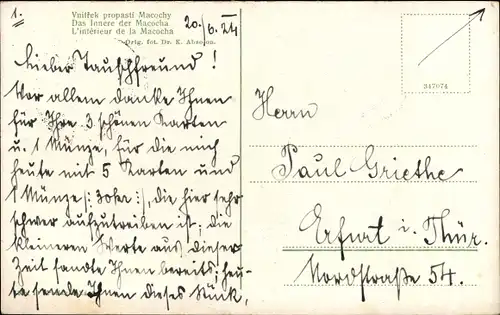 1.
Vnitřek propasti Macochy
Das Innere der Macocha
L'intérieur de la Macocha
Orig. fot. Dr. K. Absolon.
20./6. 24
Lieber Tauschfreund!
Vor allem danke Ihnen
für Ihre 3 schönen Karten
u. 1 Münze, für die mich
heute mit 5 Karten und
1 Münze /: 30 kr :/, die hier sehr
schwer aufzutreiben ist; die
kleineren Werte aus dieser
Zeit sandte Ihnen bereits; heu-
te sende Ihnen dieses Stück,
347974
Herrn
Paul Griethe
Erfurt i. Thür.
Nordstraße 54.